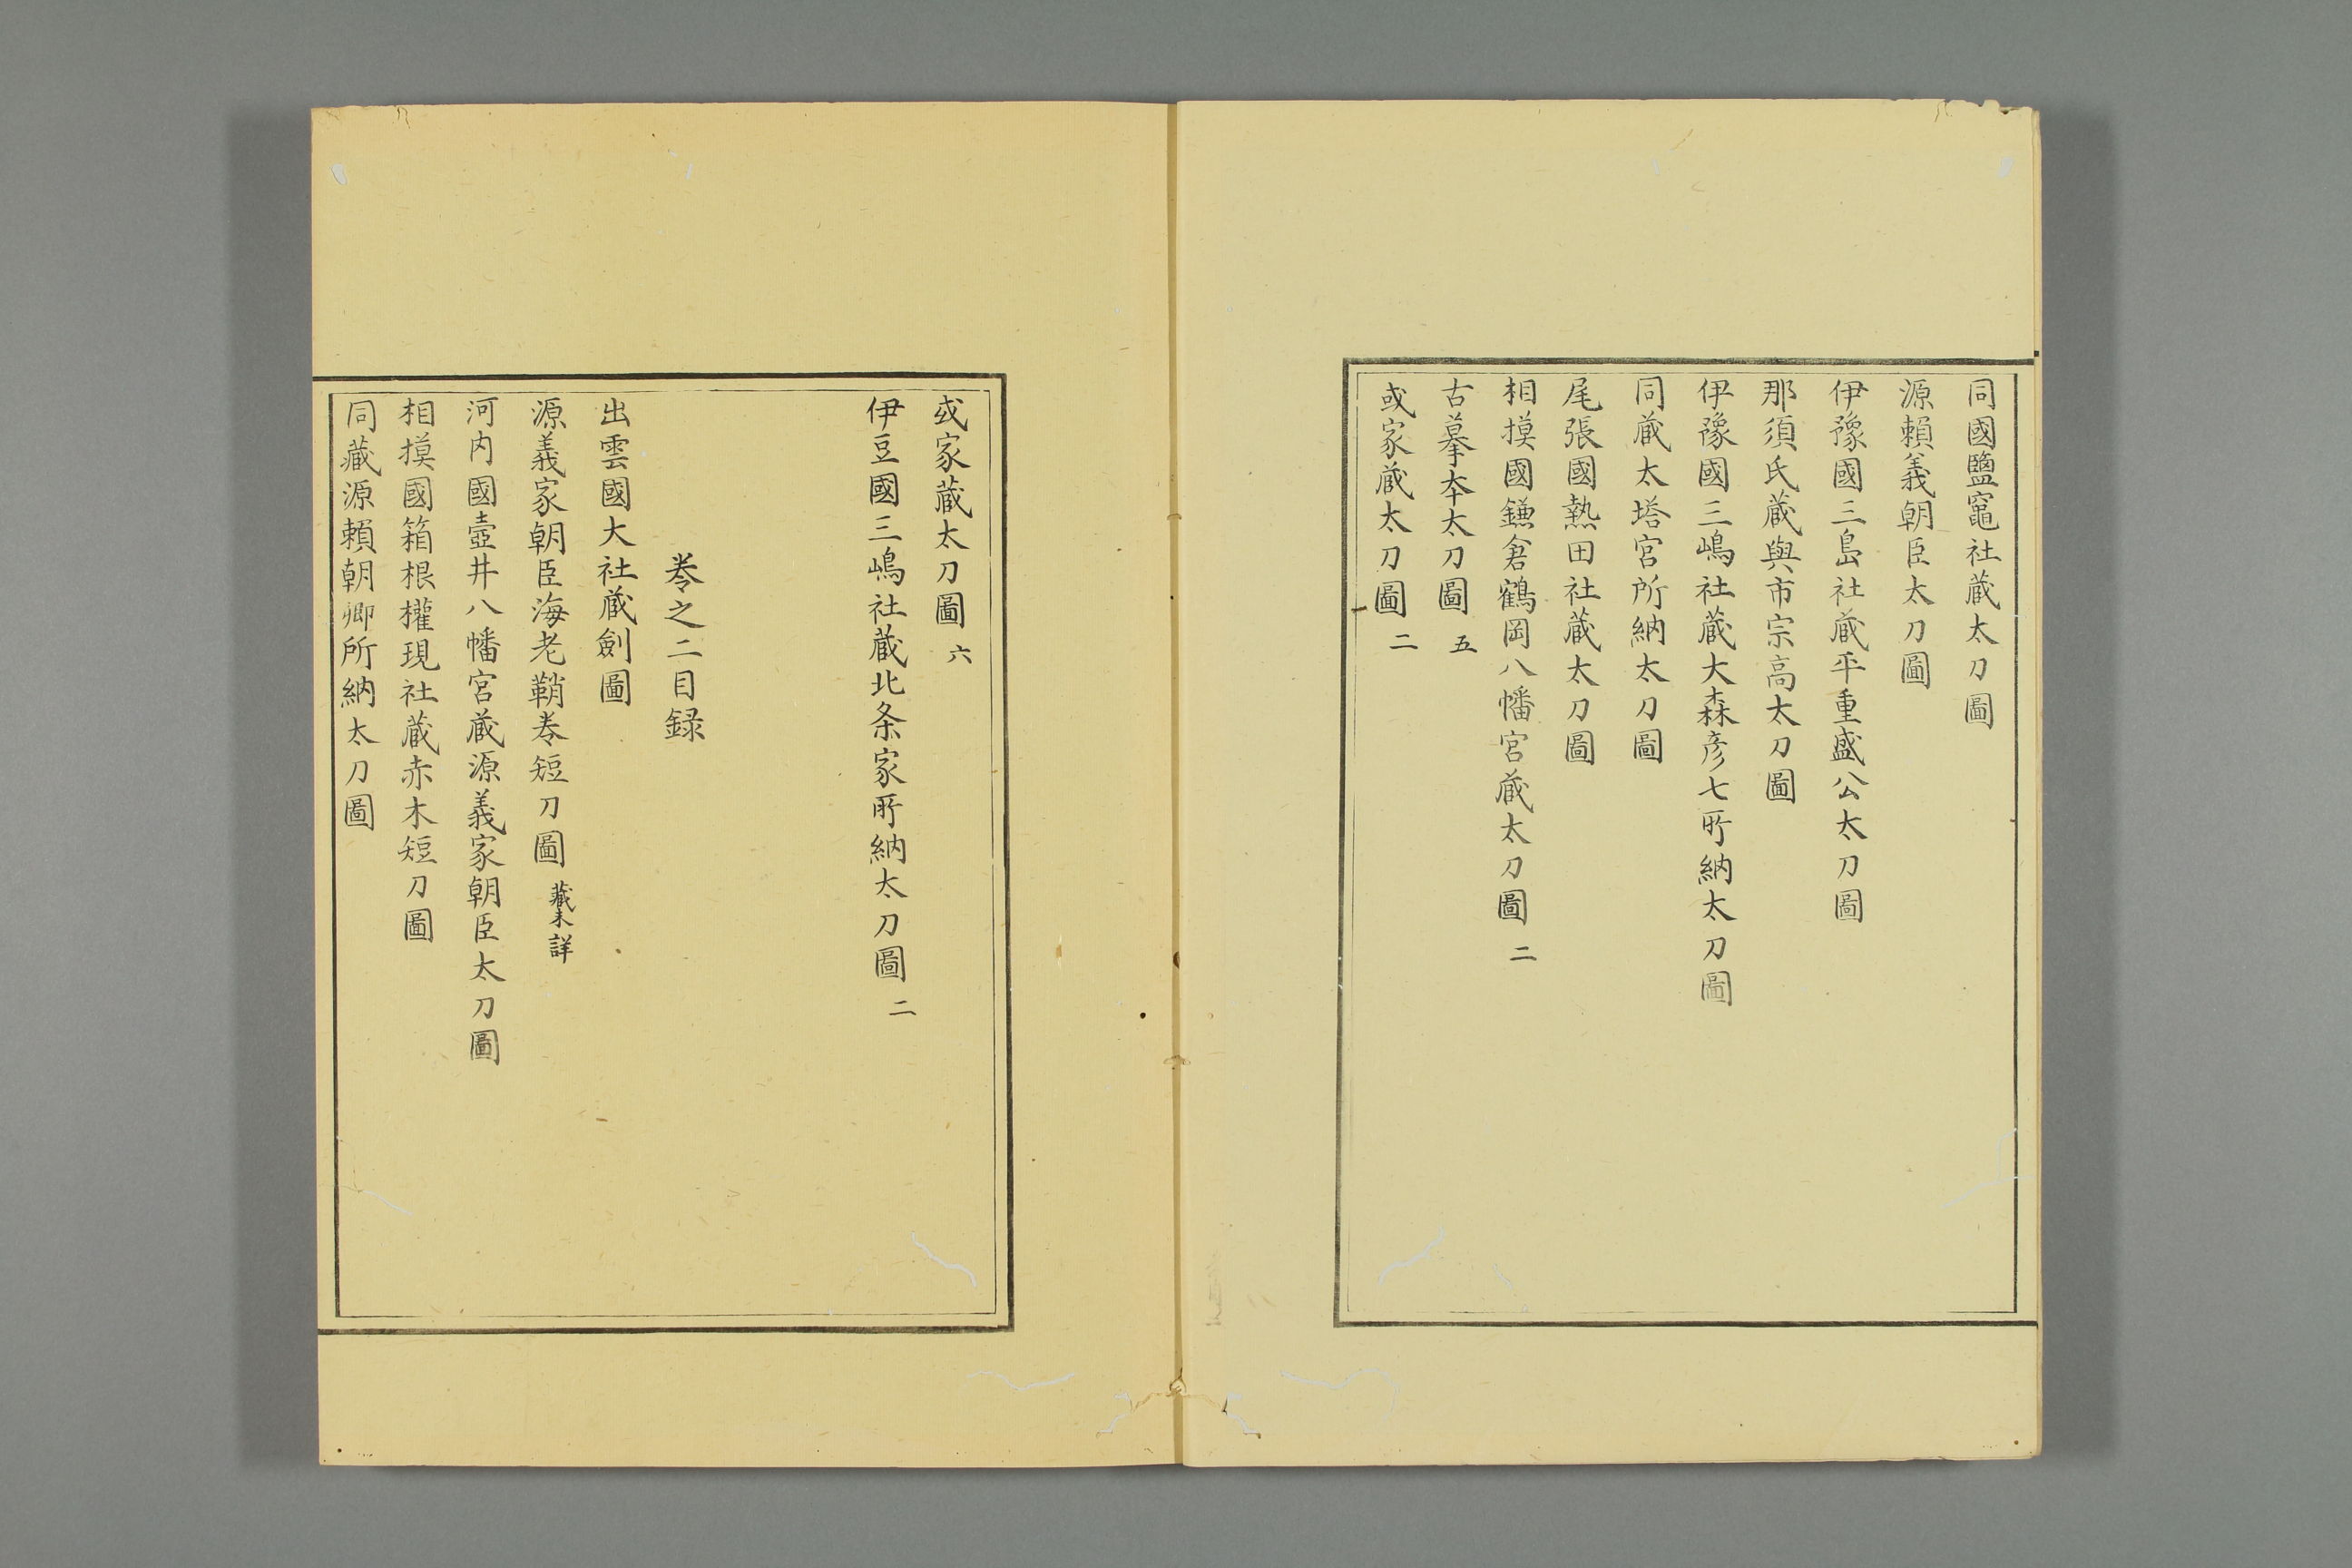 同國鹽竈社蔵太刀圖
源頼義朝臣太刀圖
伊豫國三島社蔵平重盛公太刀圖
那須氏蔵與市宗高太刀圖
伊豫國三嶋社蔵大森彦七所納太刀圖
同蔵大塔宮所納太刀圖
尾張國熱田社蔵太刀圖
相摸國鎌倉鶴岡八幡宮蔵太刀圖 二
古摹本太刀圖 五
或家蔵太刀圖 二
或家蔵太刀圖 六
伊豆國三嶋社蔵北条家所納太刀圖 二
巻之二目録
出雲國大社蔵劍圖
源義家朝臣海老鞘巻短刀圖 藏未詳
河内國壺井八幡宮蔵源義家朝臣太刀圖
相摸國箱根權現社蔵赤木短刀圖
同藏源頼朝卿所納太刀圖